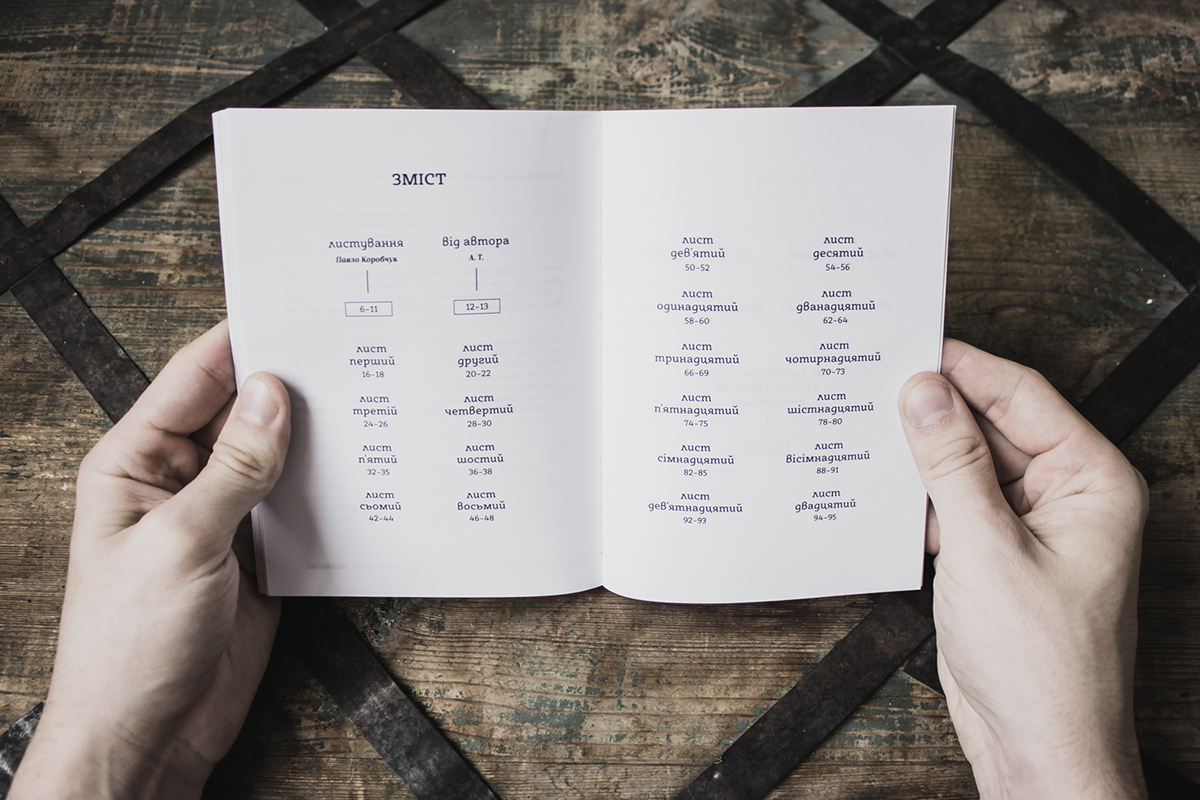 ЗМІСТ
листування
Павло Коробчук
6–11
від автора
А. Т.
12–13
лист
перший
16–18
лист
другий
20–22
лист
третій
24–26
лист
четвертий
28–30
лист
п'ятий
32–35
лист
шостий
36–38
лист
сьомий
42–44
лист
восьмий
46–48
лист
дев'ятий
50–52
лист
десятий
54–56
лист
одинадцятий
58–60
лист
дванадцятий
62–64
лист
тринадцятий
66–69
лист
чотирнадцятий
70–73
лист
п'ятнадцятий
74–75
лист
шістнадцятий
78–80
лист
сімнадцятий
82–85
лист
вісімнадцятий
88–91
лист
дев'ятнадцятий
92–93
лист
двадцятий
94–95